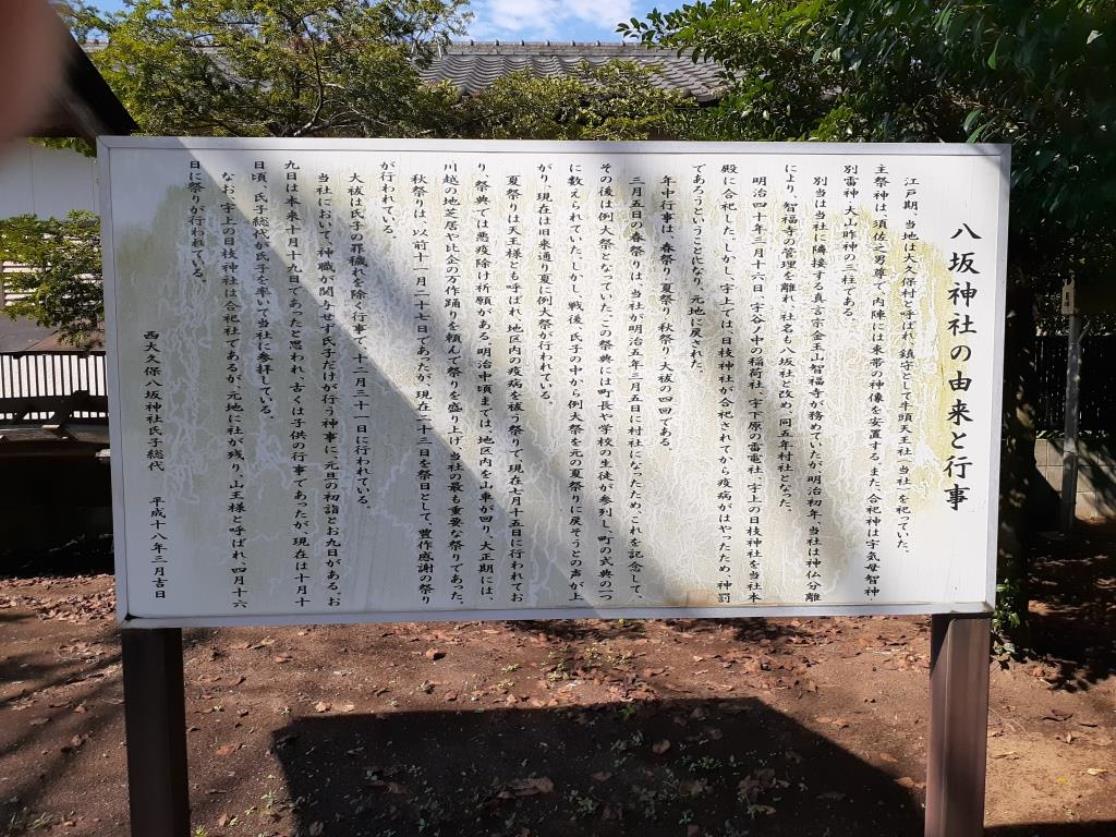 八坂神社の由来と行事
江戸期、当地は大久保村と呼ばれ、鎮守として牛頭天王社(当社)を祀っていた。
主祭神は、須佐之男尊で、内陣には束帯の神像を安置する。また、合祀神は宇気母智神・
別雷神・大山昨神の三柱である。
別当は当社に隣接する真言宗金玉山智福寺が務めていたが、明治初年、当社は神仏分離
により、智福寺の管理を離れ、社名も八坂社と改め、同五年村社となった。
明治四十年三月十六日、字谷ノ中の稲荷社、字下原の雷電社、字上の日枝神社を当社本
殿に合祀した。しかし、字上では、日枝神社が合祀されてから疫病がはやったため、神罰
であろうということになり、元地に戻された。
年中行事は、春祭り・夏祭り・秋祭り・大祓の四回である。
三月五日の春祭りは、当社が明治五年三月五日に村社になったため、これを記念して、
その後は例大祭となっていた。この祭典には町長や学校の生徒が参列し、町の式典の一つ
に数えられていた。しかし、戦後、氏子の中から例大祭を元の夏祭りに戻そうとの声が上
がり、現在は旧来通り夏に例大祭が行われている。
夏祭りは天王様とも呼ばれ、地区内の疫病を祓う祭りで、現在七月十五日に行われてお
り、祭典では悪疫除け祈願がある。明治中頃までは、地区内を山車が回り、大正期には、
川越の地芝居や比企の万作踊りを頼んで祭りを盛り上げ、当社の最も重要な祭りであった。
秋祭りは、以前十一月二十七日であったが、現在二十三日を祭日として、豊作感謝の祭り
が行われている。
大祓は氏子の罪穢れを除く行事で、十二月三十一日に行われている。
当社において、神職が関与せず氏子だけが行う神事に、元旦の初詣とお九日がある。お
九日は本来十月十九日であったと思われ、古くは子供の行事であったが、現在は十月十
日頃、氏子総代が氏子を率いて当社に参拝している。
なお、字上の日枝神社は合祀社であるが、元地に社が残り、山王様と呼ばれ、四月十六
日に祭りが行われている。
西大久保八坂神社氏子総代 平成十八年三月吉日